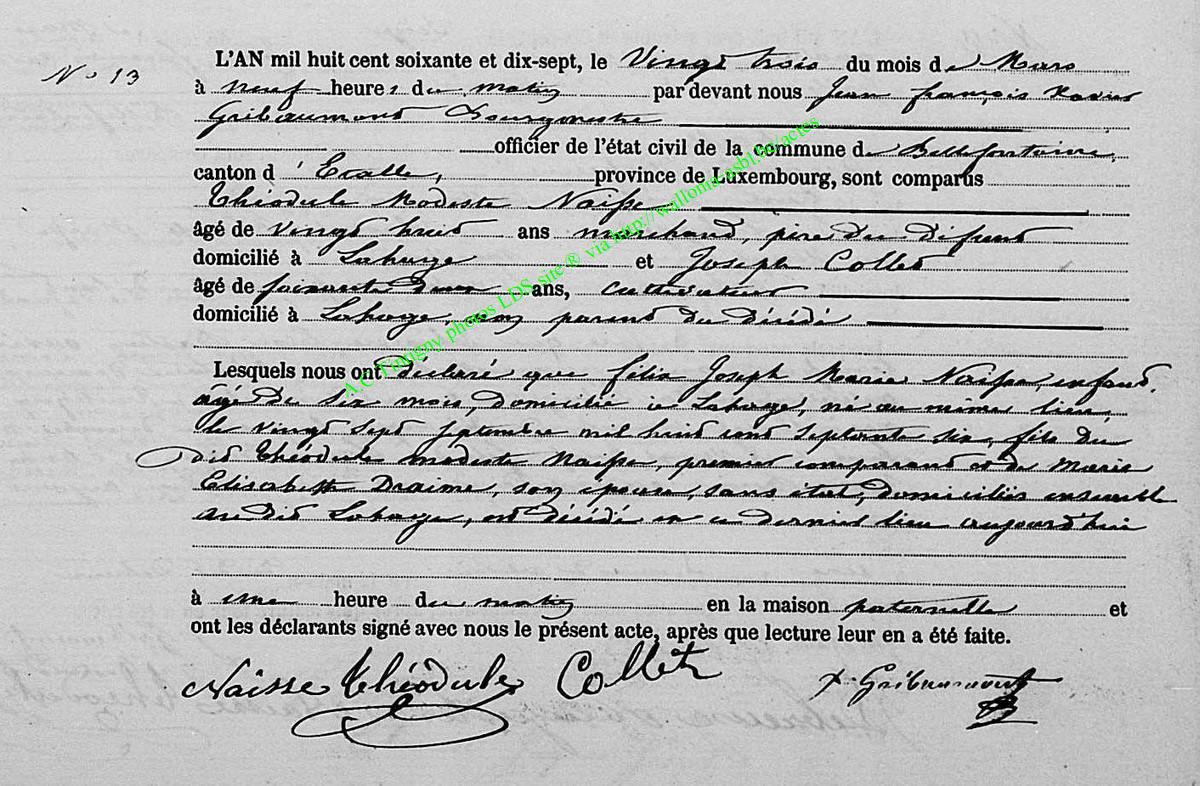 N° 13
L'AN mil huit cent soixante et dix-sept, le Vingt trois du mois de Mars
à neuf heures du matin par devant nous Jean françois Xavier
Gribaumont Bourgmestre
officier de l'état civil de la commune de Bellefontaine,
canton d'Etalle, province de Luxembourg, sont comparus
Théodule Modeste Naisse
âgé de vingt huit ans marchand, père du défunt
domicilié à Lahage et Joseph Collet
âgé de soixante deux ans, cultivateur
domicilié à Lahage, parent du décédé
Lesquels nous ont déclaré que félix Joseph Marie Naisse, enfant
âgé de six mois, domicilié à Lahage, né au même lieu
le vingt sept septembre mil huit cent septante six, fils du
dit Théodule modeste Naisse, premier comparant et de Marie
Elisabeth Draime, son épouse, sans état, domiciliés ensemble
au dit Lahage, est décédé en ce dernier lieu aujourd'hui
à une heure du matin en la maison paternelle et
ont les déclarants signé avec nous le présent acte, après que lecture leur en a été faite.
Naisse Théodule Collet X. Gribaumont
A.C. Tintigny photos LDS, site ® via http://wallonia-asbl.be/actes